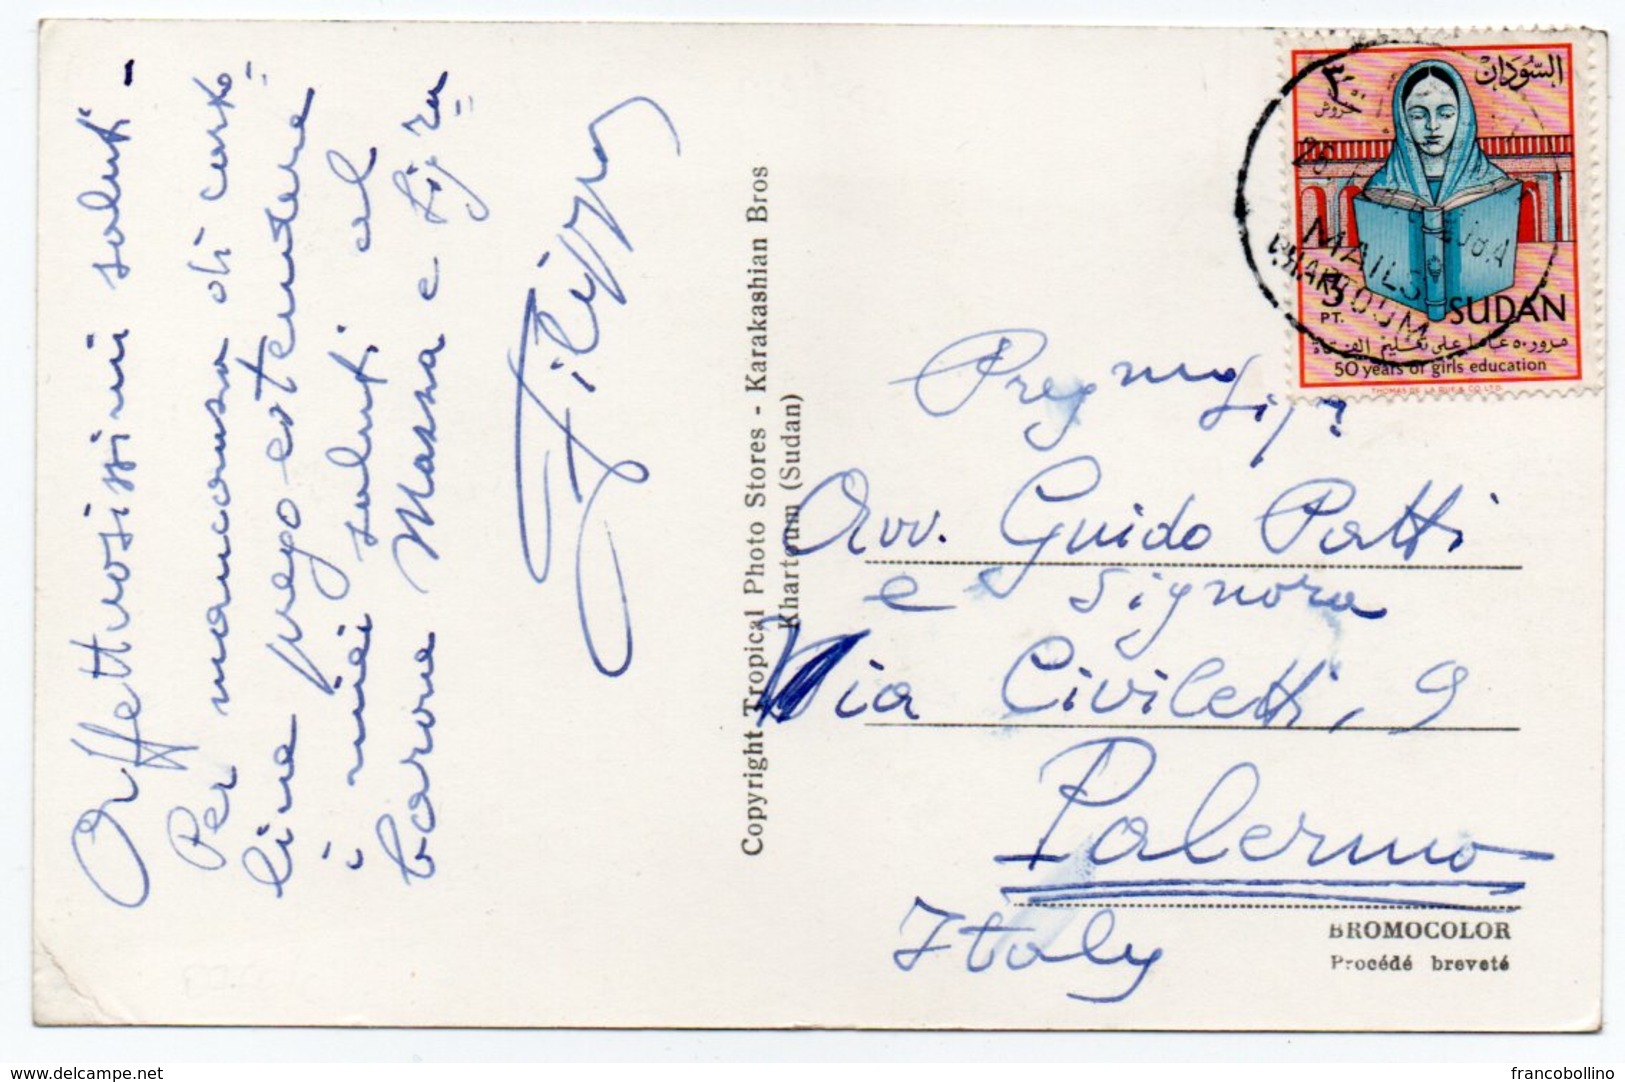 Affettuosissimi saluti -
Per mancanza di carto=
line prego estendere
i miei saluti al
barone Massa e Sig.ra
Filippo
Copyright Tropical Photo Stores - Karakashian Bros
Khartoum (Sudan)
السودان
٣
قروش
MAILS
KHARTOUM
3
PT.
SUDAN
مرور ٥٠ عاما على تعليم الفتاة
50 years of girls education
THOMAS DE LA RUE & CO. LTD.
Pregmo
Sig.
Avv. Guido Patti
e Signora
Via Civiletti, 9
Palermo
Italy
BROMOCOLOR
Procédé breveté
delcampe.net
francobollino